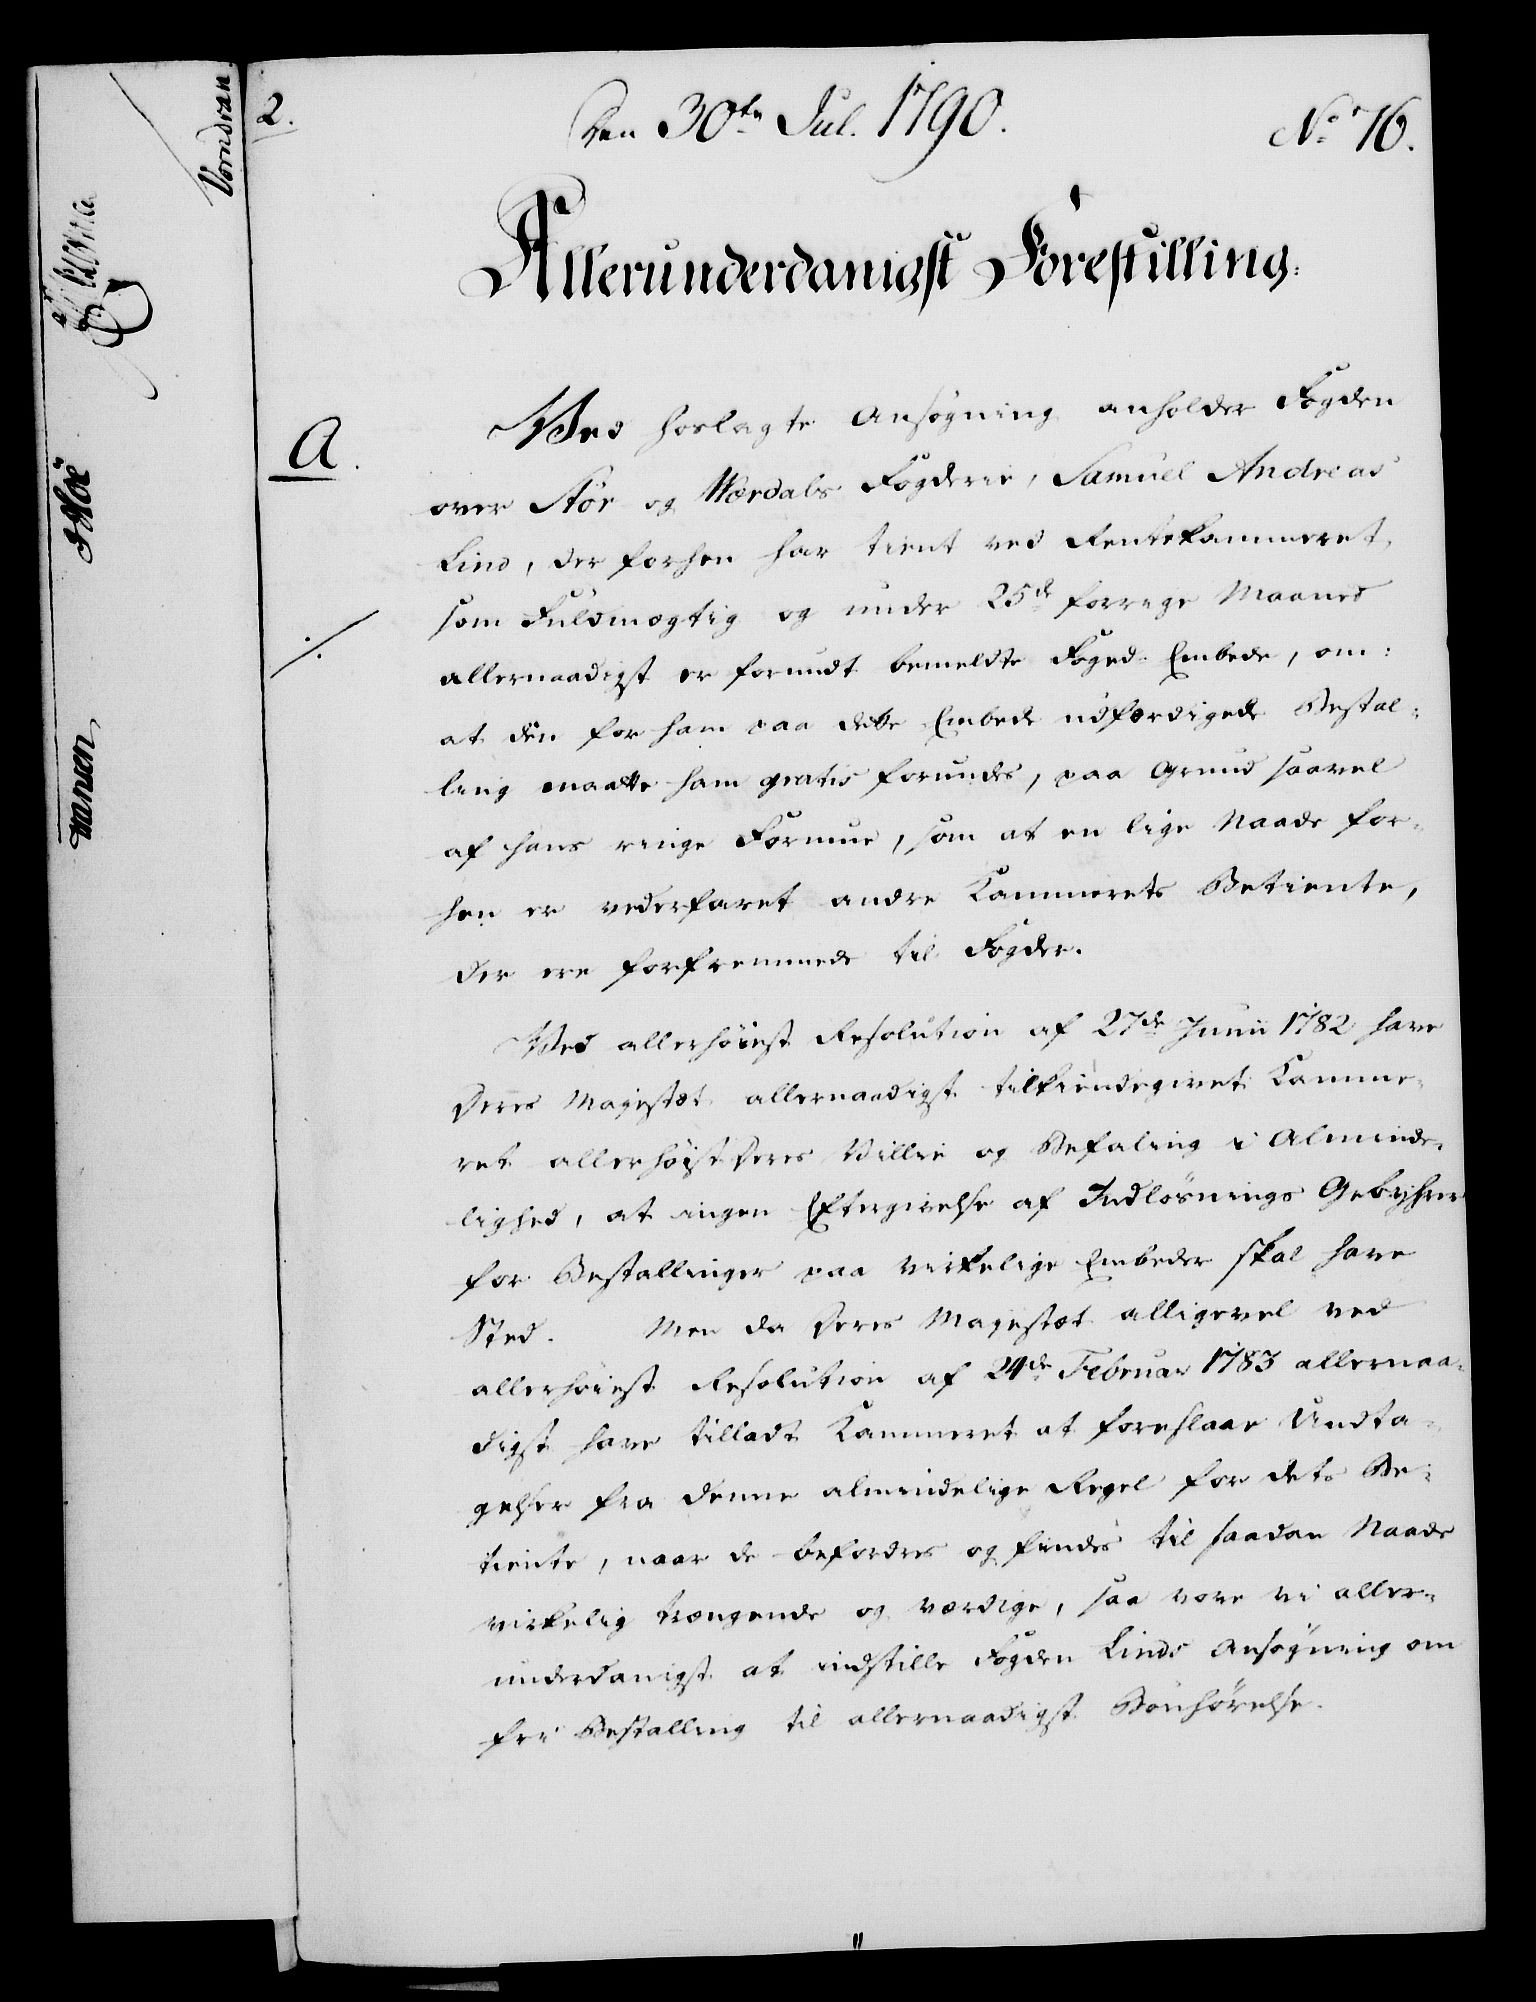 2.
Den 30te Jul. 1790.
No 76.
Allerunderdanigst Forestilling.
A.
Ved hoslagte Ansøgning anholder Fogden
over Stör og Værdals Fogderie, Samuel Andreas
Lind, der forhen har tient ved Rentekammeret,
som Fuldmægtig og under 25de forrige Maaned
allernaadigst er forundt bemeldte Foged-Embede, om:
at den for ham paa dette Embede udfærdigede Bestal-
ling maatte ham gratis forundes, paa Grund saavel
af hans ringe Formue, som at en lige Naade for-
hen er vederfaret andre Kammerets Betiente,
der ere forfremmede til Fogder.
Ved allerhöiest Resolution af 27de Junii 1782 have
Deres Majestæt allernaadigst tilkiendegivet Kamme-
ret allerhöist Deres Villie og Befaling i Alminde-
lighed, at ingen Eftergivelse af Indlösnings Gebyhrer
for Bestallinger paa virkelige Embeder skal have
Sted. Men da Deres Majestæt alligevel ved
allerhöiest Resolution af 24de Februar 1783 allernaa-
digst have tilladt Kammeret at foreslaae Undta-
gelser fra denne almindelige Regel for dets Be-
tiente, naar de befordres og findes til saadan Naade
virkelig trængende og værdige, saa vove vi aller-
underdanigst at indstille Fogden Linds Ansøgning om
fri Bestalling til allernaadigst Bönhörelse.
Vorndran
Höe